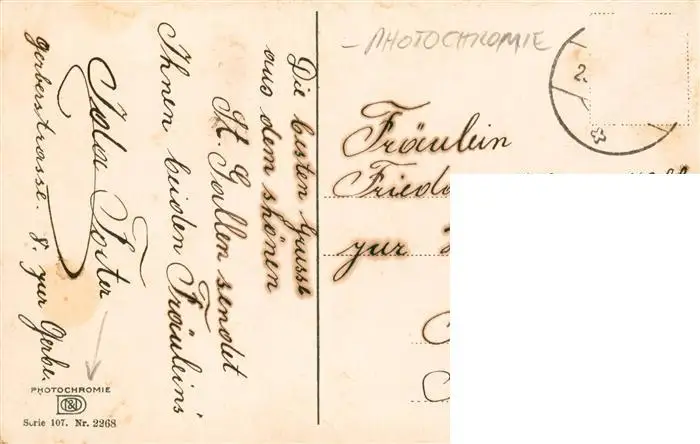 Die besten Grüsse
aus dem shönen
St. Gallen sendet
Ihnen beiden Fräuleins
Foster
Gerberstrasse. 8. zur Gerbe.
PHOTOCHROMIE
Serie 107. Nr. 2268
- PHOTOCHROMIE
2.
Fräulein
zur